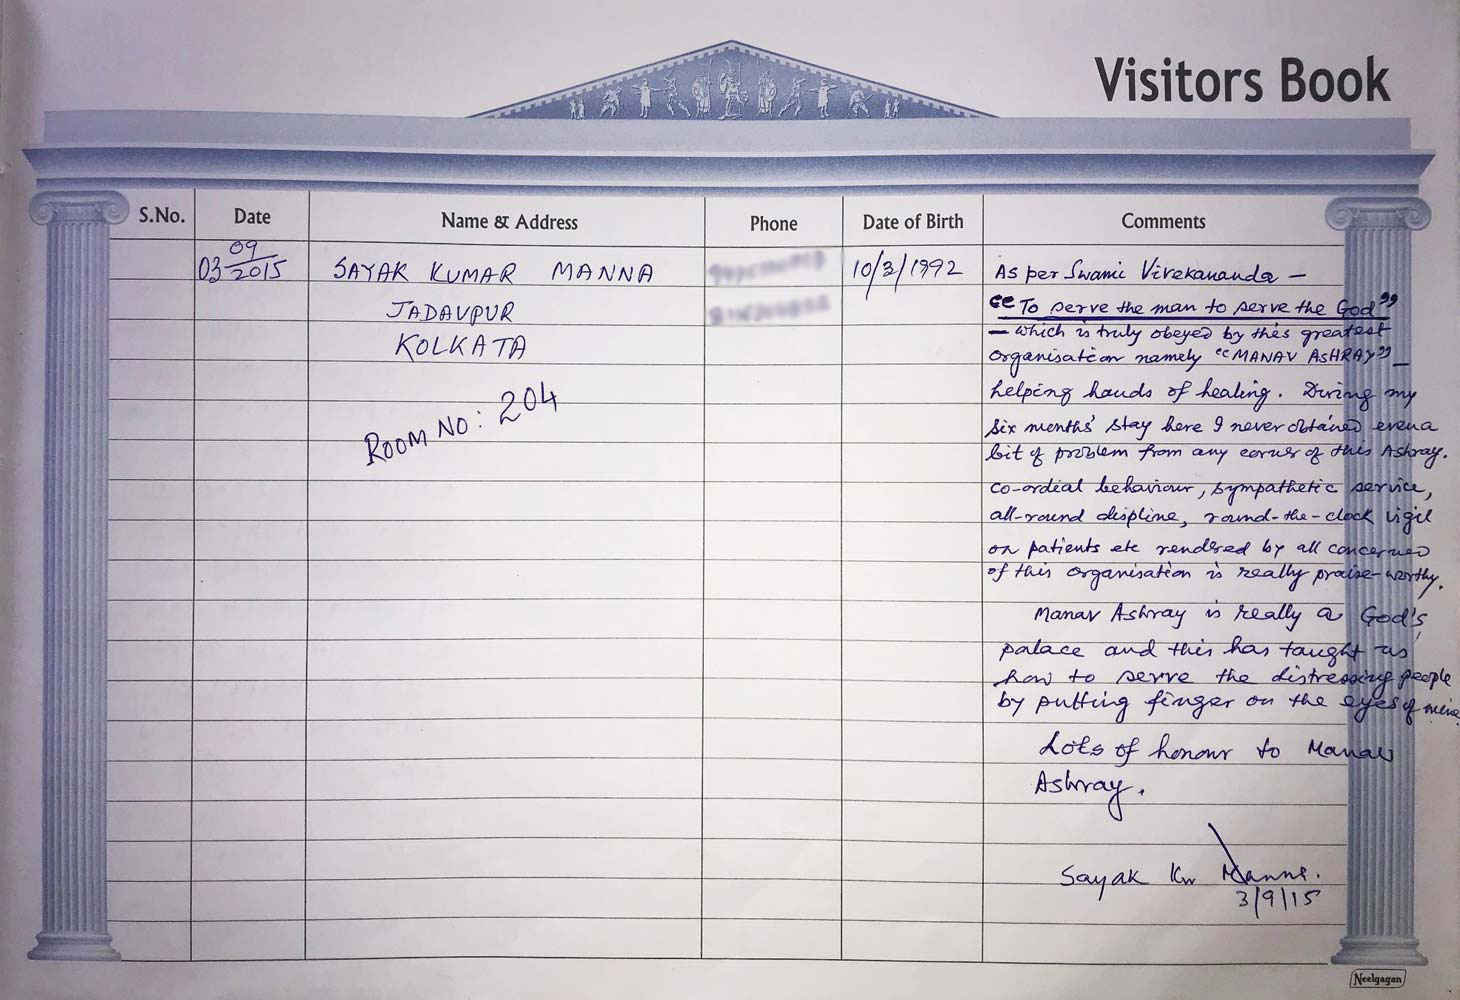 Visitors Book
S.No. Date Name & Address Phone Date of Birth Comments
03 09/2015 SAYAK KUMAR MANNA 10/3/1992
JADAVPUR
KOLKATA
ROOM NO: 204
As per Swami Vivekananda –
"To serve the man to serve the God"
– which is truly obeyed by this greatest
organisation namely "MANAV ASHRAY" –
helping hands of healing. During my
six months' stay here I never obtained even a
bit of problem from any corner of this Ashray.
co-ordial behaviour, sympathetic service,
all-round displine, round-the-clock vigil
on patients etc rendered by all concerned
of this organisation is really praise-worthy.
Manav Ashray is really a God's
palace and this has taught us
how to serve the distressing people
by putting finger on the eyes of mine
Lots of honour to Manav
Ashray.
Sayak Kr Manna.
3/9/15
Neelgagan